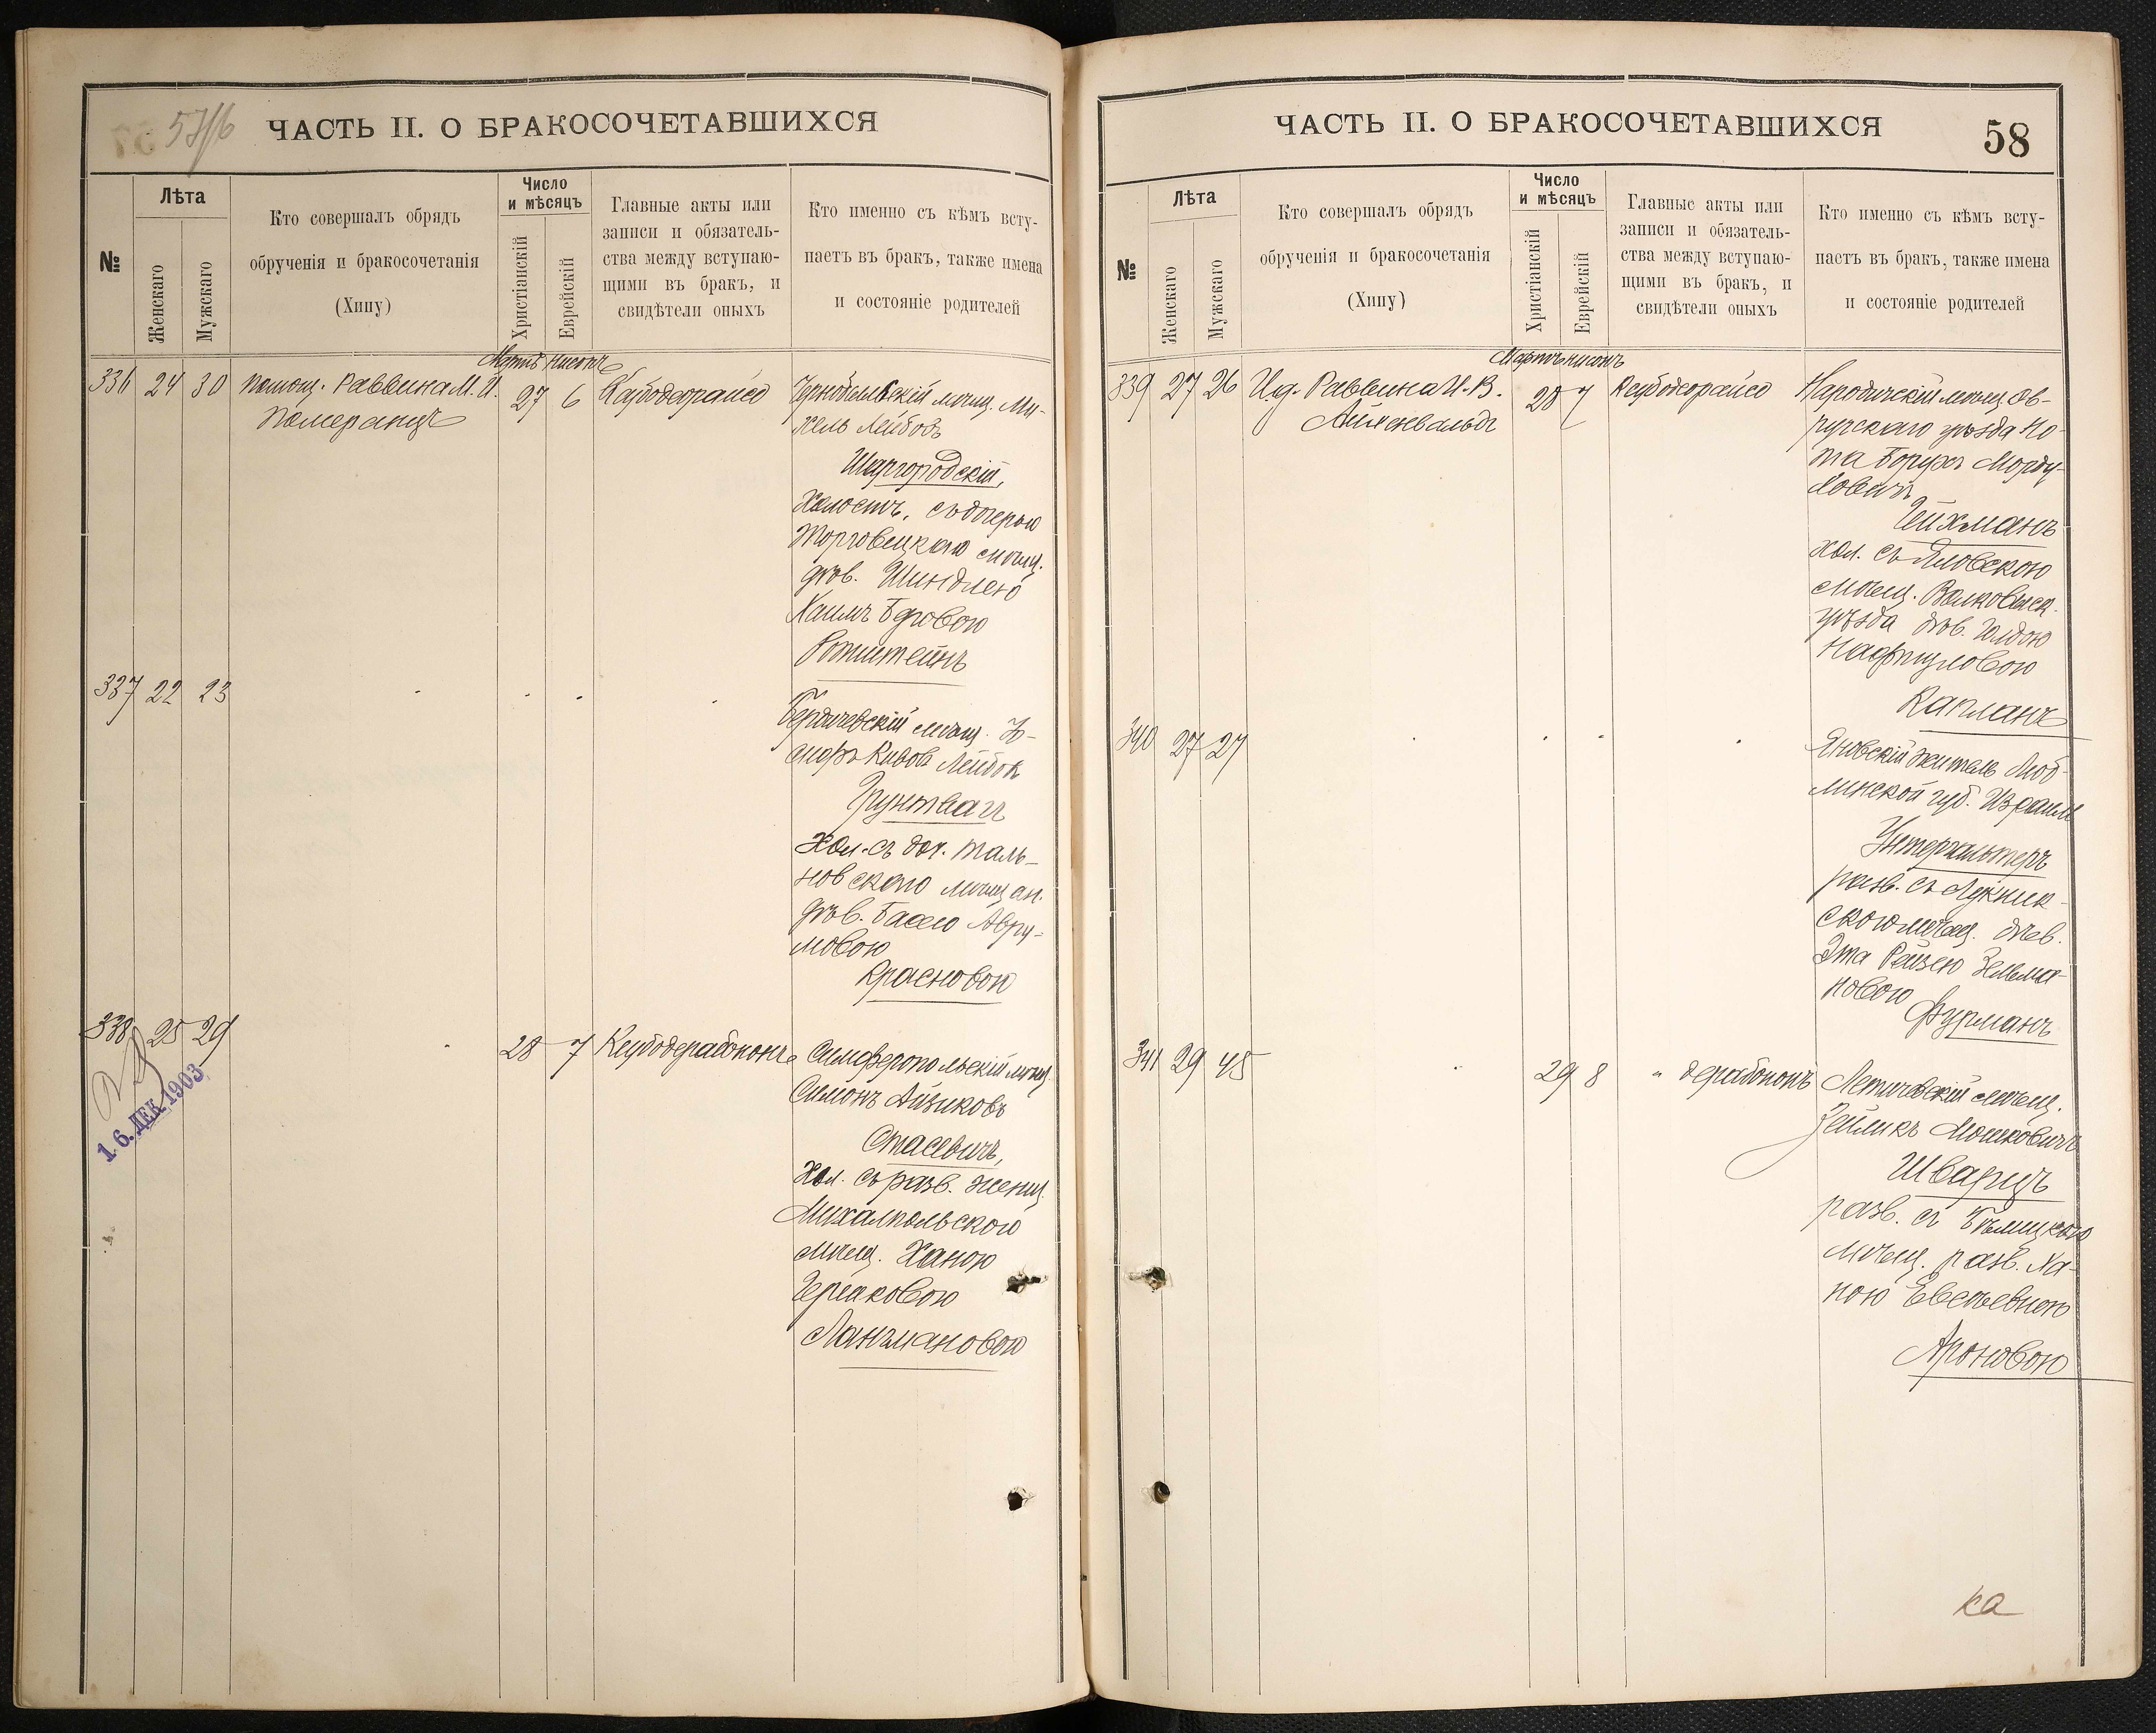 57/б
ЧАСТЬ II. О БРАКОСОЧЕТАВШИХСЯ
№
Лѣта
Женскаго
Мужскаго
Кто совершалъ обрядъ
обрученія и бракосочетанія
(Хипу)
Число
и мѣсяцъ
Христіанскій
Еврейскій
Главные акты или
записи и обязатель-
ства между вступаю-
щими въ бракъ, и
свидѣтели оныхъ
Кто именно съ кѣмъ всту-
паетъ въ бракъ, также имена
и состояніе родителей
Мартъ Нисонъ
336 24 30 Помощ. Раввина М. И. 27 6 Кеубодеорайсо
Померанцъ
Чернобыльскій мѣщ. Ми-
хель Лейбовъ
Шаргородскій,
Холостъ, съ дочерью
Торговецкаго мѣщ.
дѣв. Шиндлею
Хаимъ Беровою
Ротштейнъ
337 22 23
Бердичевскій мѣщ. Іо-
сифъ Кивовъ Лейбовъ
Грунтвагъ
Хол. съ доч. Таль-
новскаго мѣщан.
дѣв. Басею Авру-
мовою
Красновою
338 25 29 28 7 Кеубодерабононъ
16. ДЕК. 1903
Симферопольскій мѣщ.
Симонъ Айзиковъ
Стасевичъ,
Хол. съ разв. женщ.
Михалпольскою
мѣщ. Ханою
Гершковою
Лангмановою
ЧАСТЬ II. О БРАКОСОЧЕТАВШИХСЯ
58
№
Лѣта
Женскаго
Мужскаго
Кто совершалъ обрядъ
обрученія и бракосочетанія
(Хипу)
Число
и мѣсяцъ
Христіанскій
Еврейскій
Главные акты или
записи и обязатель-
ства между вступаю-
щими въ бракъ, и
свидѣтели оныхъ
Кто именно съ кѣмъ всту-
паетъ въ бракъ, также имена
и состояніе родителей
Мартъ Нисонъ
339 27 26 И. д. Раввина И. В. 28 7 Кеубодеорайсо
Айхенвальдъ
Народичскій мѣщ. Ов-
ручскаго уѣзда Но-
та Борухъ Морду-
ховичъ
Тейхманъ
хол. съ Яловскою
мѣщ. Волковыск.
уѣзда дѣв. Голдою
Нафтуловою
Капланъ
340 27 27
Яновскій житель Люб-
линской губ. Израиль
Унтерхальтеръ
разв. съ Лукник-
скою мѣщ. дѣв.
Эта Рейзею Зельма-
новою
Фурманъ
341 29 45 29 8 " дерабононъ
Летичевскій мѣщ.
Зейликъ Мошковичъ
Шварцъ
разв. съ Бѣлицкою
мѣщ. разв. Ха-
ною Евсѣевною
Ароновою
ка